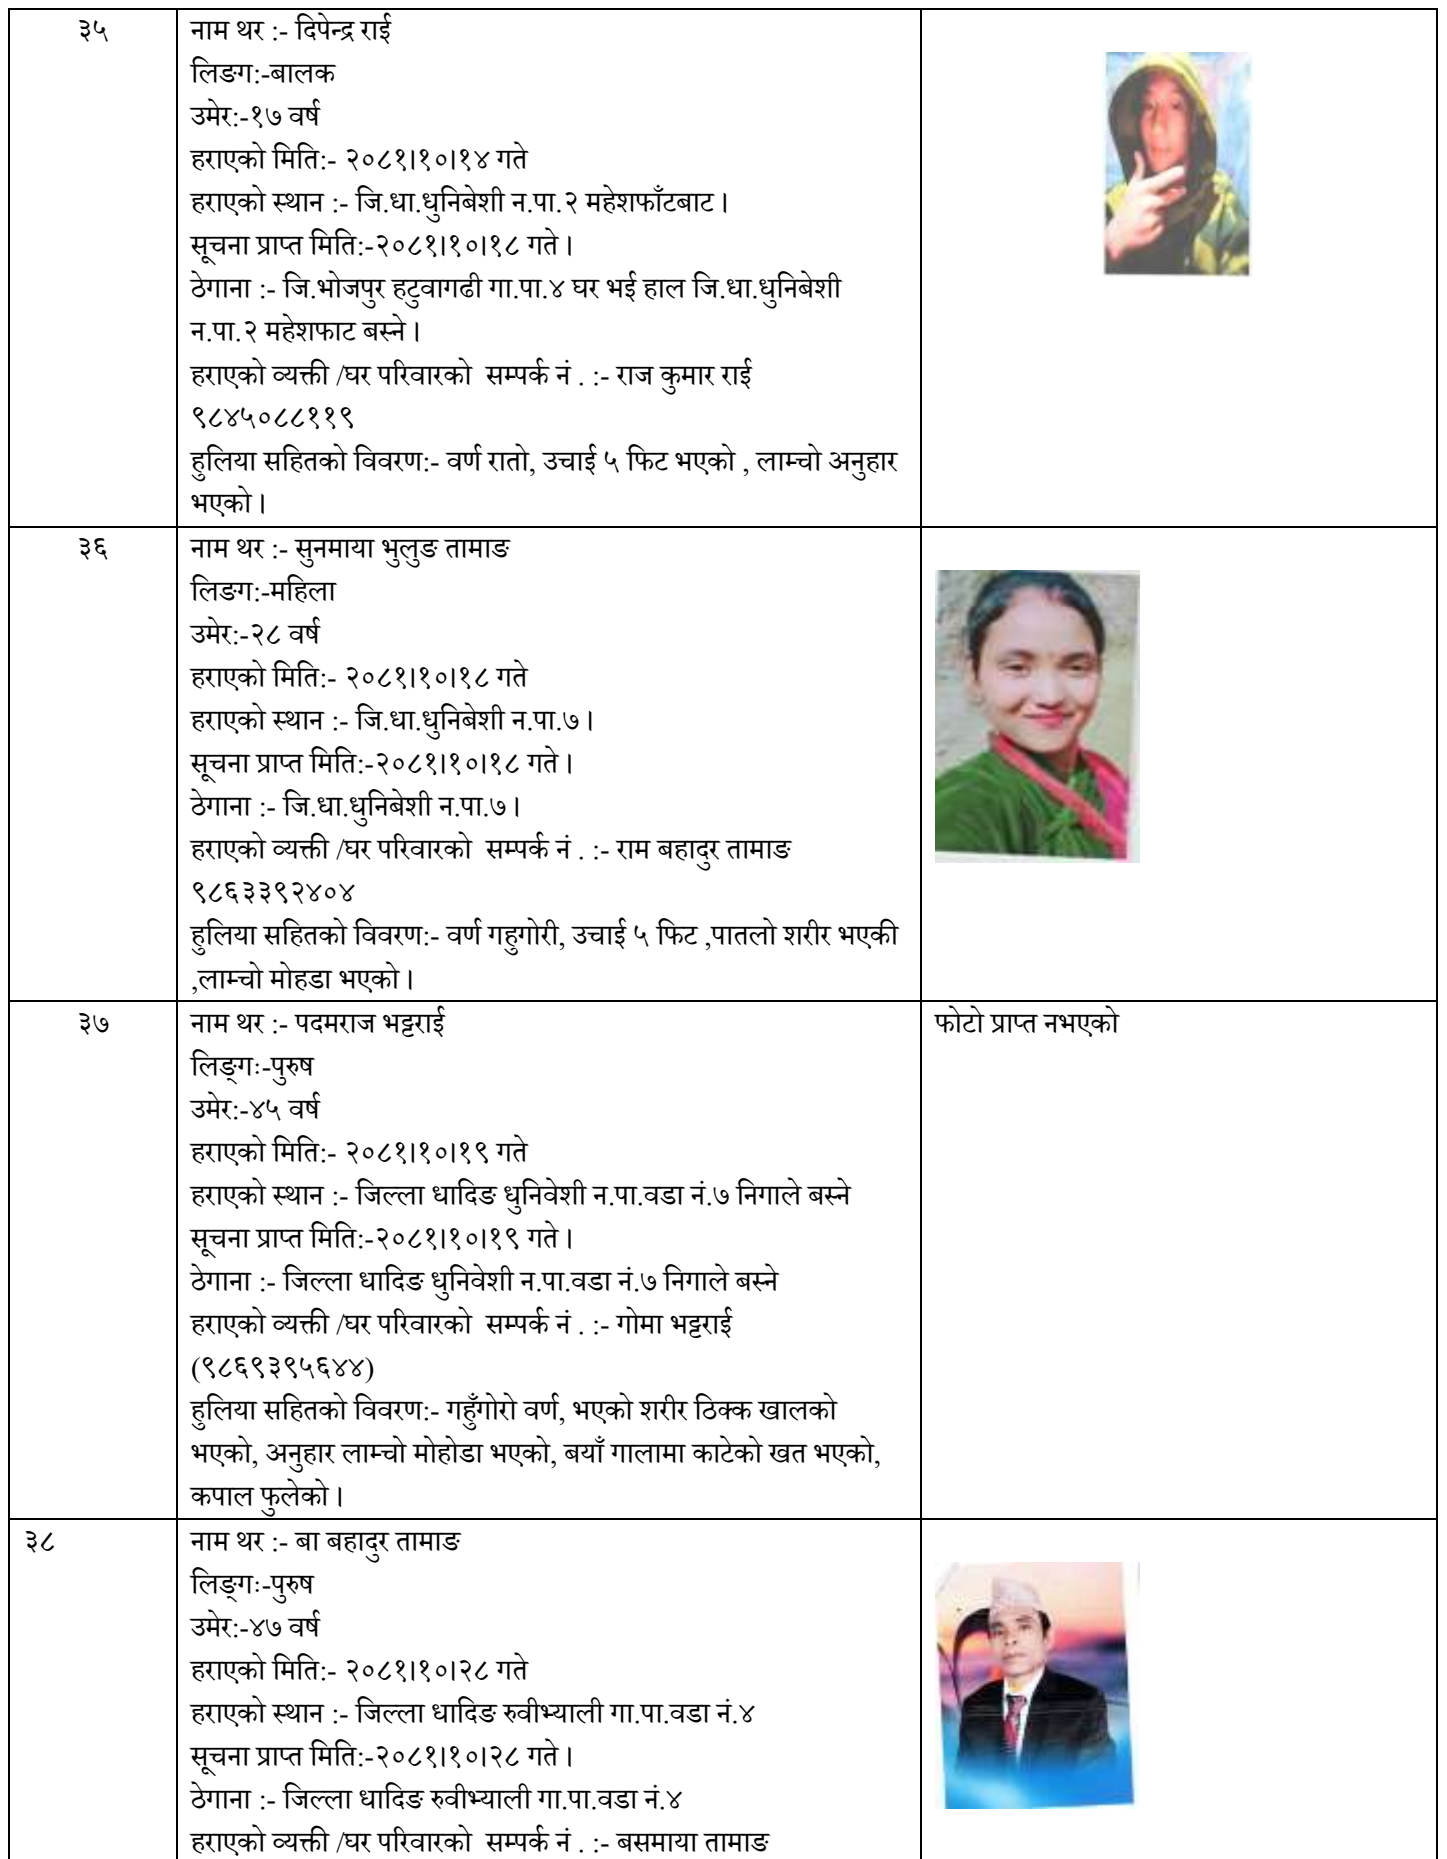 ३५
नाम थर :- दिपेन्द्र राई
लिङग:-बालक
उमेर:-१७ वर्ष
हराएको मिति:- २०८१।१०।१४ गते
हराएको स्थान :- जि.धा.धुनिबेशी न.पा.२ महेशफाँटबाट।
सूचना प्राप्त मिति:-२०८१।१०।१८ गते।
ठेगाना :- जि.भोजपुर हटुवागढी गा.पा.४ घर भई हाल जि.धा.धुनिबेशी
न.पा.२ महेशफाट बस्ने।
हराएको व्यक्ती /घर परिवारको  सम्पर्क नं . :- राज कुमार राई
९८४५०८८११९
हुलिया सहितको विवरण:- वर्ण रातो, उचाई ५ फिट भएको , लाम्चो अनुहार
भएको।
३६
नाम थर :- सुनमाया भुलुङ तामाङ
लिङग:-महिला
उमेर:-२८ वर्ष
हराएको मिति:- २०८१।१०।१८ गते
हराएको स्थान :- जि.धा.धुनिबेशी न.पा.७।
सूचना प्राप्त मिति:-२०८१।१०।१८ गते।
ठेगाना :- जि.धा.धुनिबेशी न.पा.७।
हराएको व्यक्ती /घर परिवारको  सम्पर्क नं . :- राम बहादुर तामाङ
९८६३३९२४०४
हुलिया सहितको विवरण:- वर्ण गहुगोरी, उचाई ५ फिट ,पातलो शरीर भएकी
,लाम्चो मोहडा भएको।
३७
नाम थर :- पदमराज भट्टराई
लिङ्गः-पुरुष
उमेर:-४५ वर्ष
हराएको मिति:- २०८१।१०।१९ गते
हराएको स्थान :- जिल्ला धादिङ धुनिवेशी न.पा.वडा नं.७ निगाले बस्ने
सूचना प्राप्त मिति:-२०८१।१०।१९ गते।
ठेगाना :- जिल्ला धादिङ धुनिवेशी न.पा.वडा नं.७ निगाले बस्ने
हराएको व्यक्ती /घर परिवारको  सम्पर्क नं . :- गोमा भट्टराई
(९८६९३९५६४४)
हुलिया सहितको विवरण:- गहुँगोरो वर्ण, भएको शरीर ठिक्क खालको
भएको, अनुहार लाम्चो मोहोडा भएको, बयाँ गालामा काटेको खत भएको,
कपाल फुलेको।
फोटो प्राप्त नभएको
३८
नाम थर :- बा बहादुर तामाङ
लिङ्गः-पुरुष
उमेर:-४७ वर्ष
हराएको मिति:- २०८१।१०।२८ गते
हराएको स्थान :- जिल्ला धादिङ रुवीभ्याली गा.पा.वडा नं.४
सूचना प्राप्त मिति:-२०८१।१०।२८ गते।
ठेगाना :- जिल्ला धादिङ रुवीभ्याली गा.पा.वडा नं.४
हराएको व्यक्ती /घर परिवारको  सम्पर्क नं . :- बसमाया तामाङ